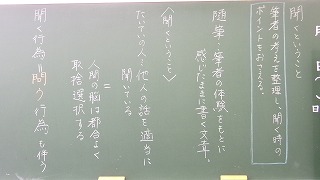 聞くということ
筆者の考えを整理し、聞く時の
ポイントをおさえる。
随筆…筆者の体験をもとに
感じたままに書く文章。
〈聞くということ〉
たいていの人…他人の話を適当に
聞いている
=
人間の脳は都合よく
取捨選択する
聞く行為…問う行為も伴う